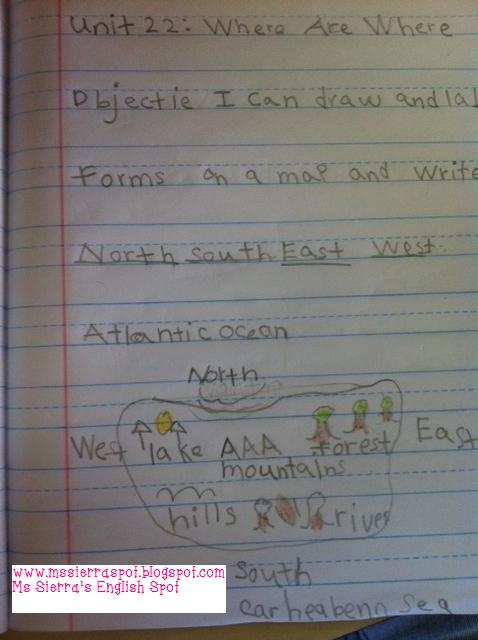 Unit 22: Where Are Where
Objectie I can draw and lal
Forms on a map and write
North South East West.
Atlantic ocean
North
West lake AAA forest East
mountains
hills river
South
carheabenn sea
www.mssierraspot.blogspot.com
Ms Sierra's English Spot